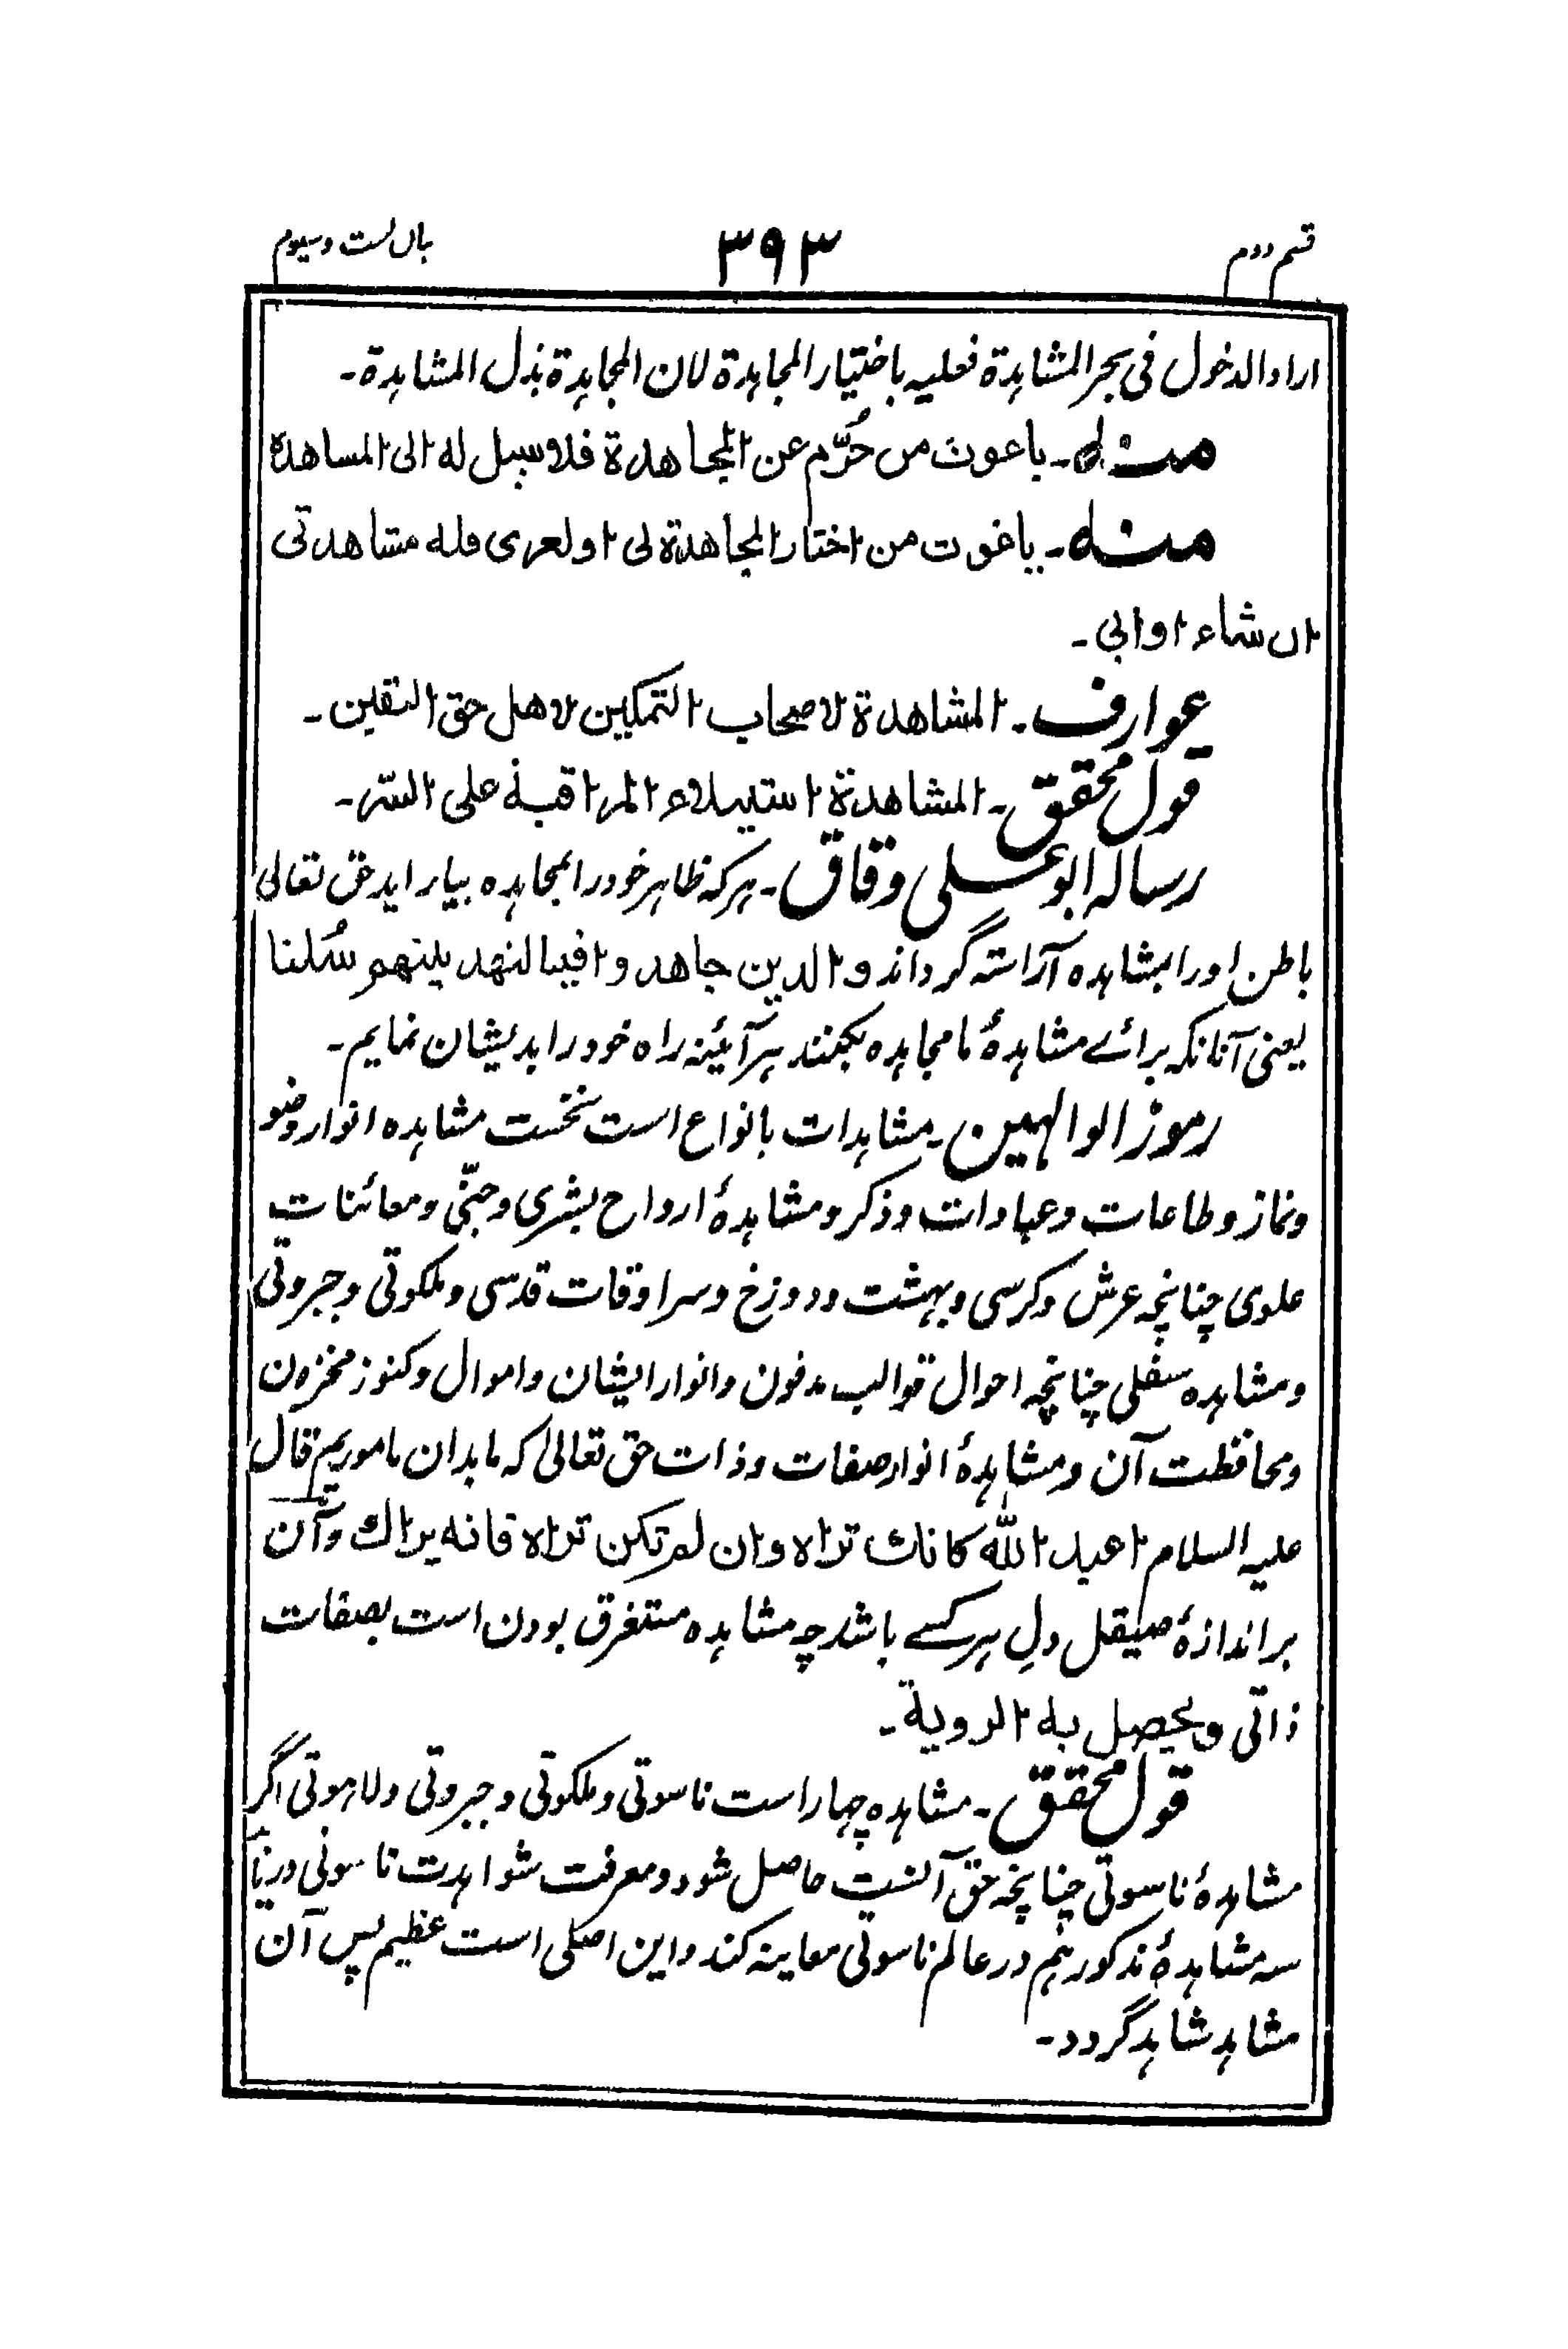 قسم دوم ۳۹۳ باب بست و سیوم
اراد الدخول فی بحر المشاہدة فعلیہ باختیار المجاہدة لان المجاہدة بذل المشاہدة۔
منہ۔ یا غوث من حُرّم عن المجاهدة فلا سبیل له الی المشاهدة
منہ۔ یا غوث من اختار المجاهدة لی او لغیری فله مشاهدتی
ان شاء او ابی۔
عوارف۔ المشاهدة لاصحاب التمکین لاهل حق الیقین۔
قول محقق۔ المشاهدة استیلاء المراقبة علی السّر۔
رسالہ ابو علی دقاق۔ ہرکہ ظاہر خود را بمجاہدہ بیاراید حق تعالی
باطن او را بمشاہدہ آراستہ گرداند و الذین جاهدوا فینا لنهدینهم سُبلنا
یعنی آنانکہ برائے مشاہدۂ ما مجاہدہ بکنند ہر آئینہ راہ خود را بدیشان نمایم۔
رموز الوالہین۔ مشاہدات بانواع است نخست مشاہدہ انوار وضو
ونماز و طاعات و عبادات و ذکر و مشاہدۂ ارواح بشری و جنّی و معائنات
علوی چنانچہ عرش و کرسی و بہشت و دوزخ و سرادقات قدسی و ملکوتی و جبروتی
و مشاہدہ سفلی چنانچہ احوال قوالب مدفون و انوار ایشان و اموال و کنوز مخزون
و محافظت آن و مشاہدۂ انوار صفات و ذات حق تعالی کہ ما بدان ماموریم قال
علیہ السلام اعبد الله کانك تراه وان لم تکن تراه فانه یراك و آن
بر اندازۂ صیقل دلِ ہر کسے باشد چہ مشاہدہ مستغرق بودن است بصفات
ذاتی و یحصل به الرویة۔
قول محقق۔ مشاہدہ چہار است ناسوتی و ملکوتی و جبروتی و لاہوتی اگر
مشاہدۂ ناسوتی چنانچہ حق آنست حاصل شود و معرفت شواہدت ناسوتی دریابد
سہ مشاہدۂ مذکور ہم در عالم ناسوتی معاینہ کند و این اصلی است عظیم پس آن
مشاہد شاہد گردد۔